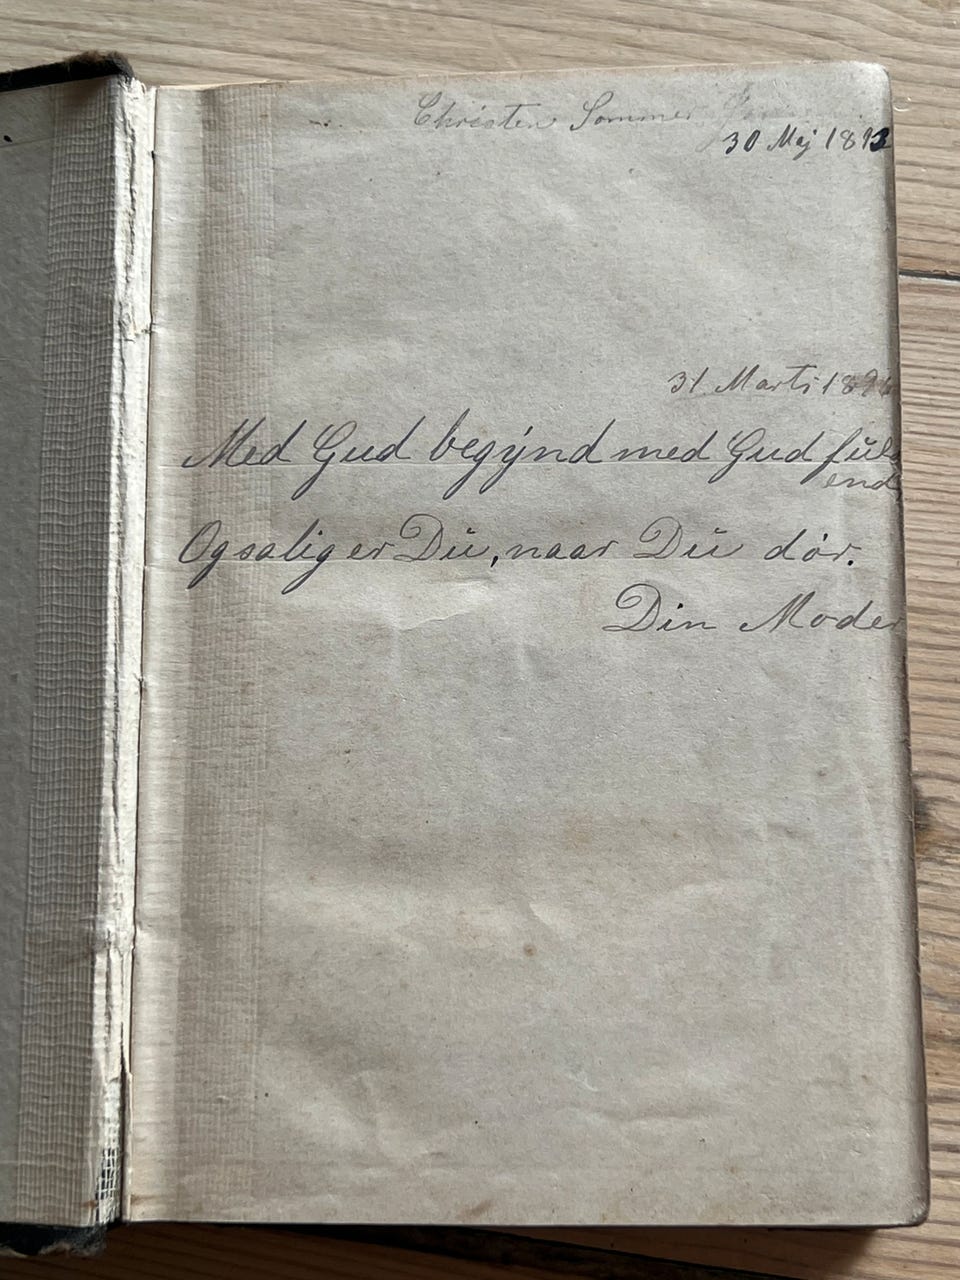 Christen Sommer
30 Maj 1893
31 Marts 1896
Med Gud begÿnd med Gud fŭld
end
Og salig er Dŭ, naar Dŭ dør.
Din Moder